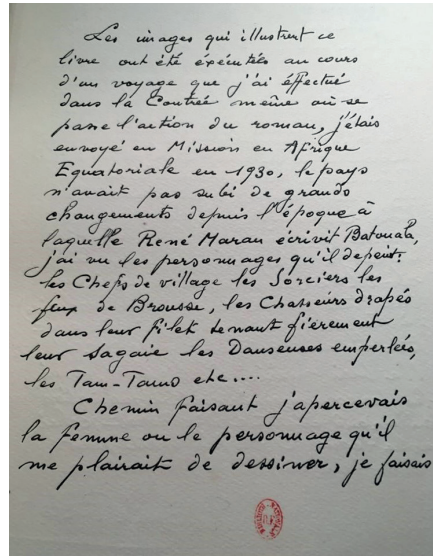 Les images qui illustrent ce
livre ont été éxécutées au cours
d'un voyage que j'ai éffectué
dans la Contrée même où se
passe l'action du roman, j'étais
envoyé en Mission en Afrique
Equatoriale en 1930, le pays
n'avait pas subi de grands
changements depuis l'époque à
laquelle René Maran écrivit Batouala,
j'ai vu les personnages qu'il depeint:
les Chefs de village les Sorciers les
feux de Brousse, les Chasseurs drapés
dans leur filet tenant fièrement
leur sagaie les Danseuses emperlées,
les Tam-Tams etc....
Chemin faisant j'apercevais
la femme ou le personnage qu'il
me plairait de dessiner, je faisais